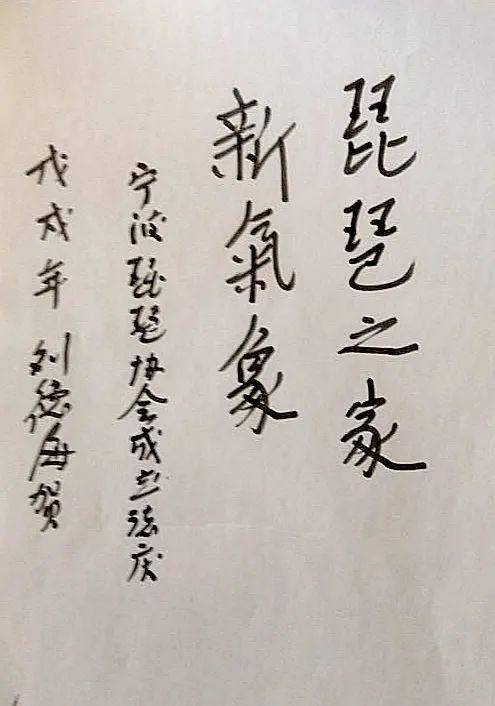 琵琶之家
新氣象
宁波琵琶协会成立誌庆
戊戌年 刘德海贺